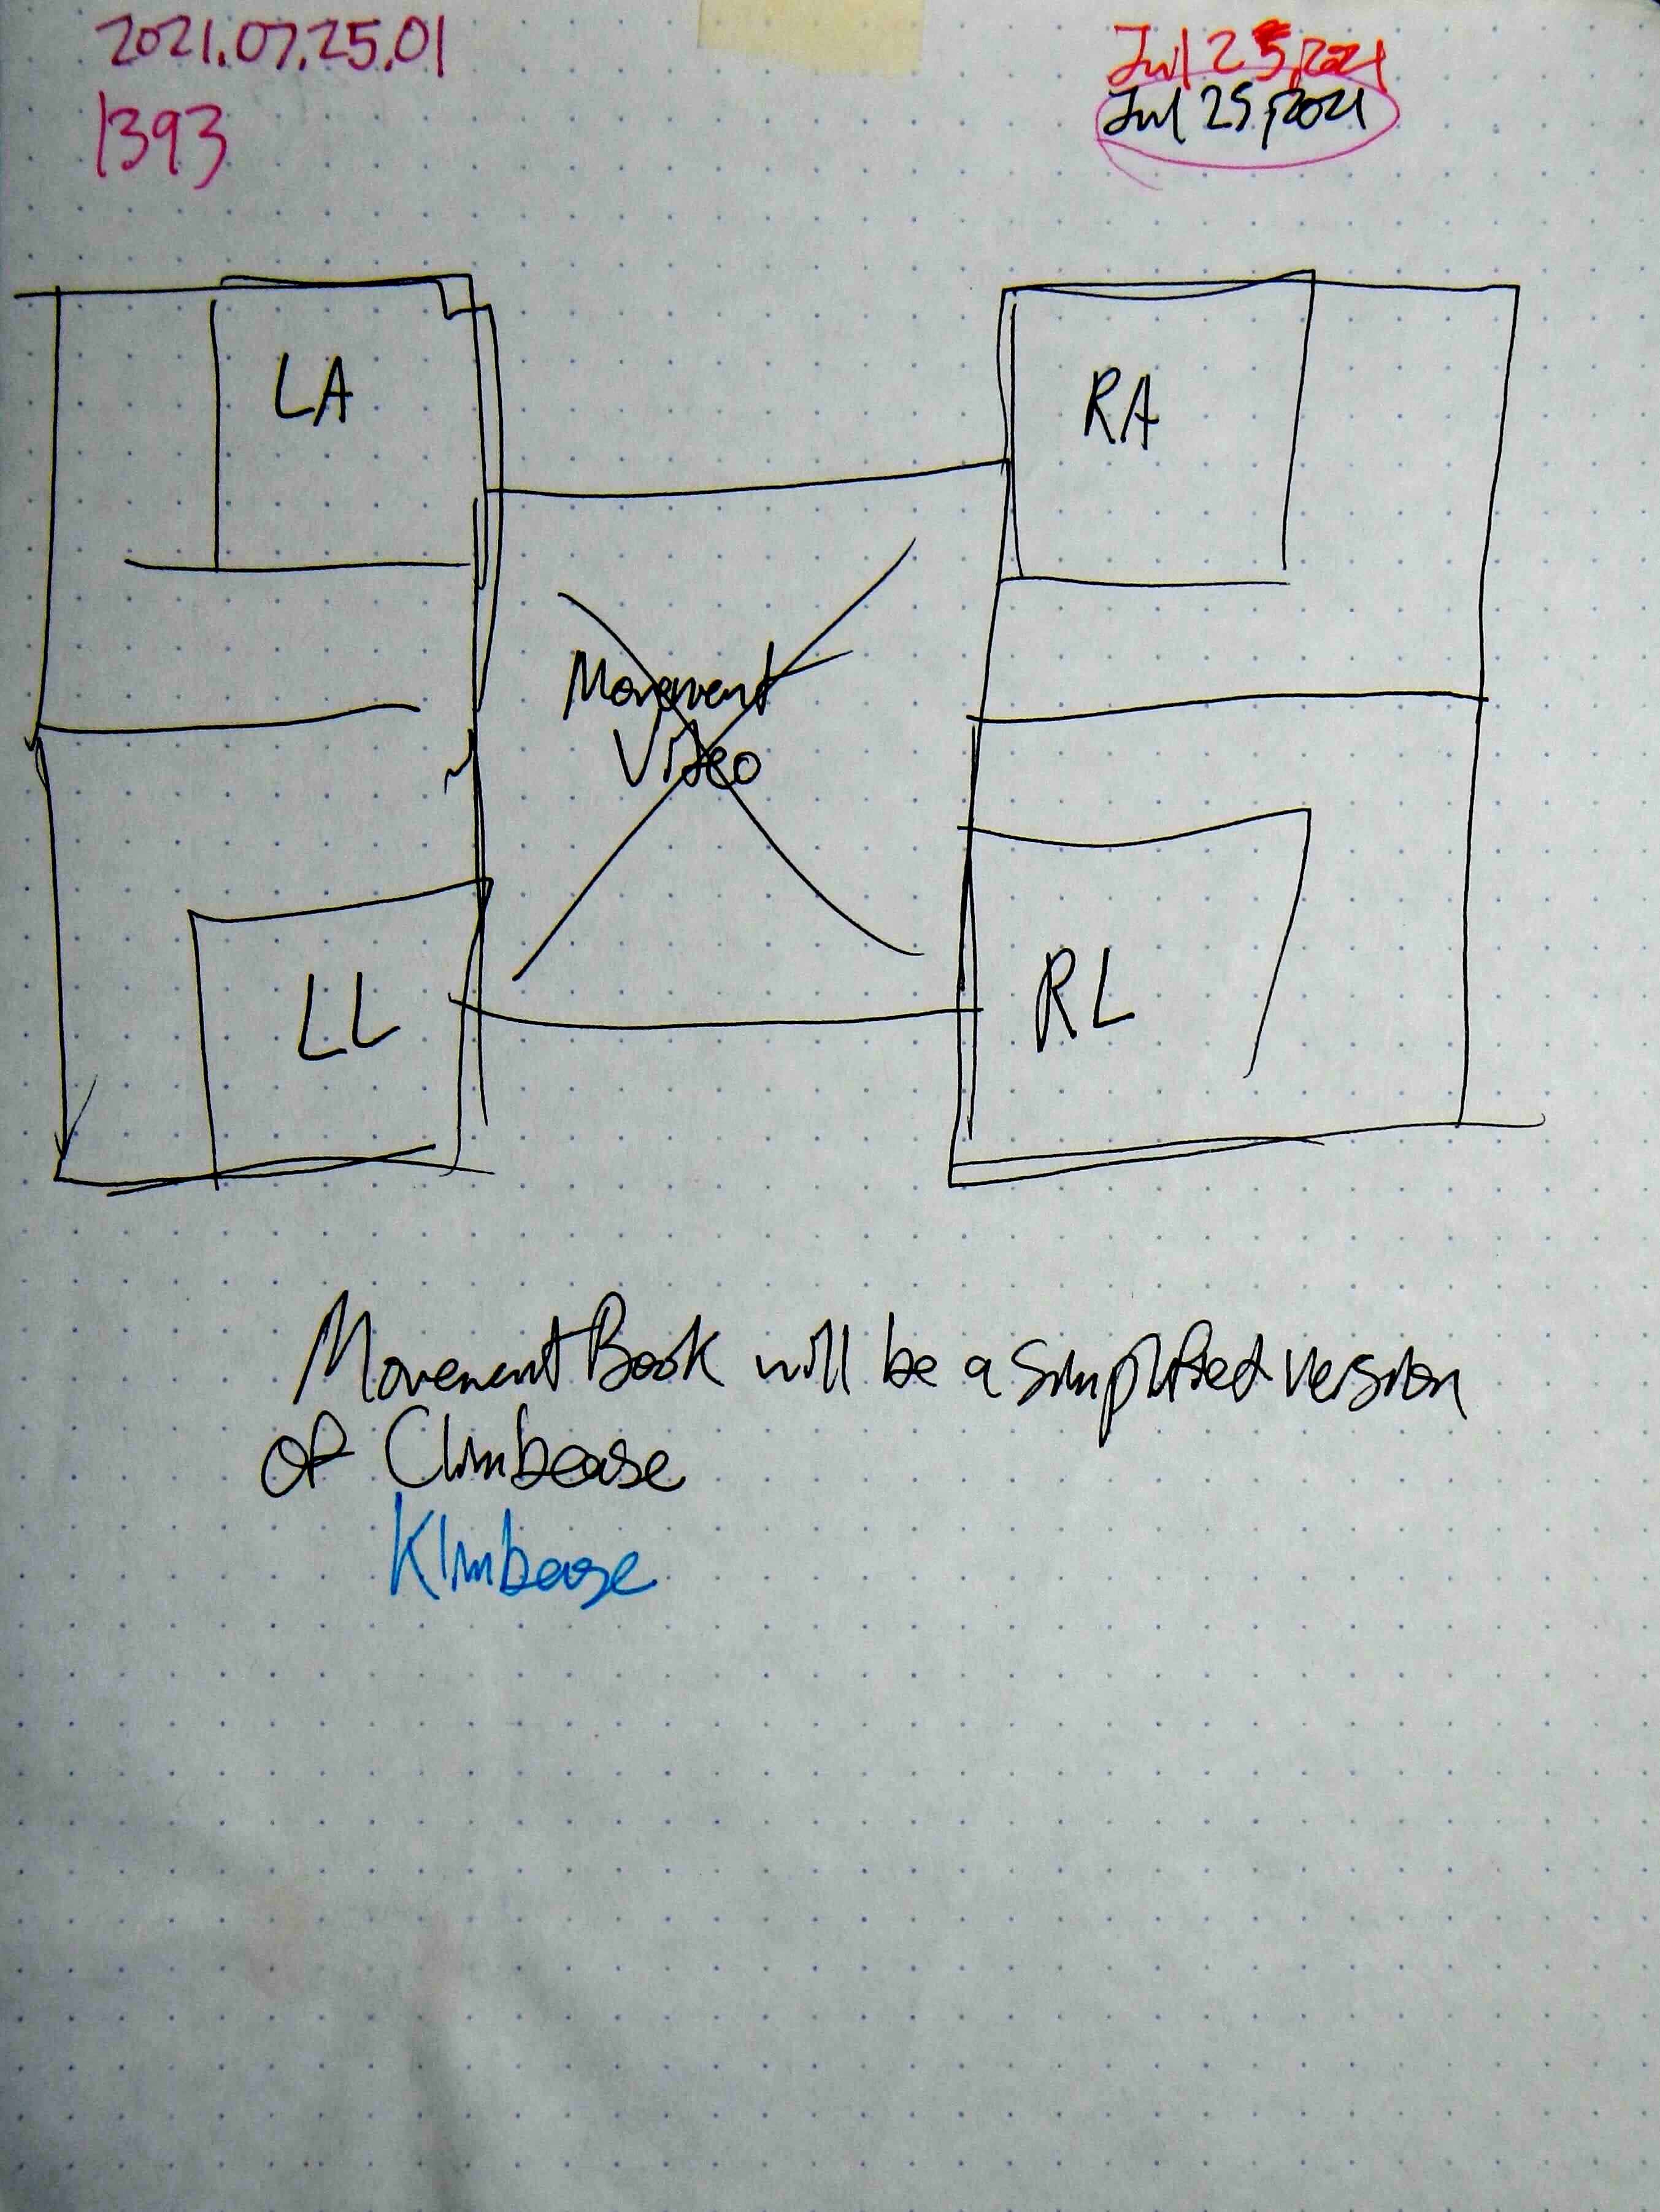 2021.07.25.01
1393
Jul 25, 2021
Jul 25, 2021
LA
RA
Movement
Video
LL
RL
MovementBook will be a simplified version
of Climbease
Klimbease